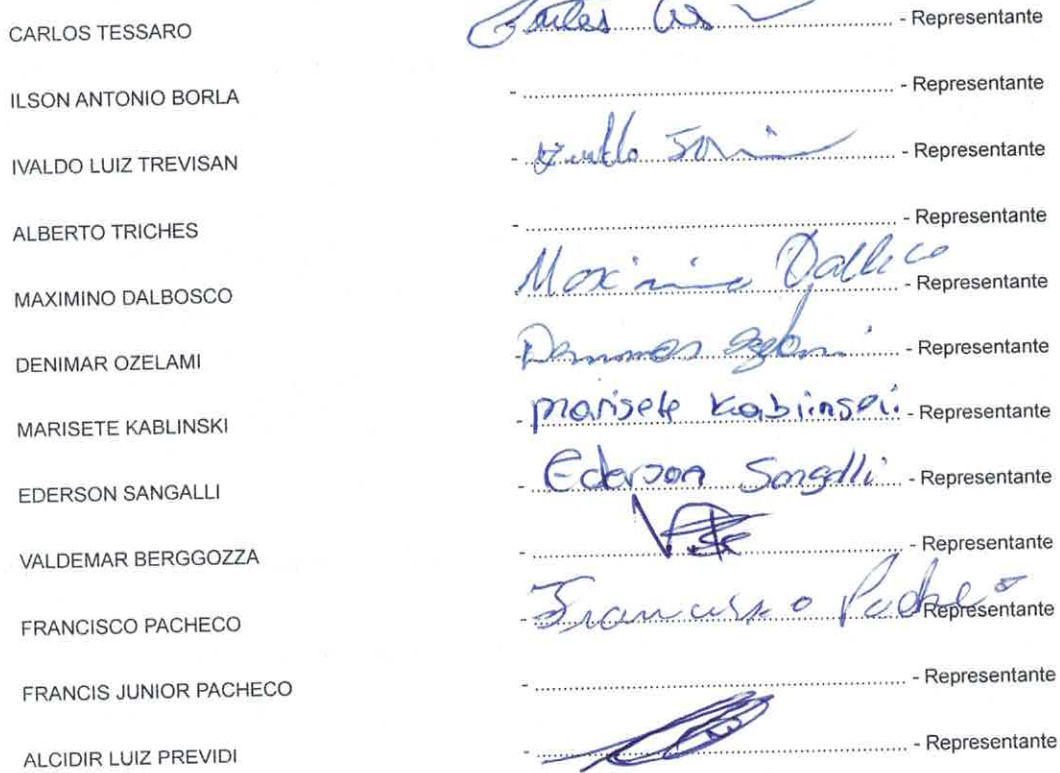 CARLOS TESSARO Carlos - Representante
ILSON ANTONIO BORLA - ........ - Representante
IVALDO LUIZ TREVISAN - - Representante
ALBERTO TRICHES - ........ - Representante
MAXIMINO DALBOSCO - Representante
DENIMAR OZELAMI - - Representante
MARISETE KABLINSKI - marisete - Representante
EDERSON SANGALLI - Ederson Sangalli - Representante
VALDEMAR BERGGOZZA - - Representante
FRANCISCO PACHECO - Francisco - Representante
FRANCIS JUNIOR PACHECO - ........ - Representante
ALCIDIR LUIZ PREVIDI - - Representante